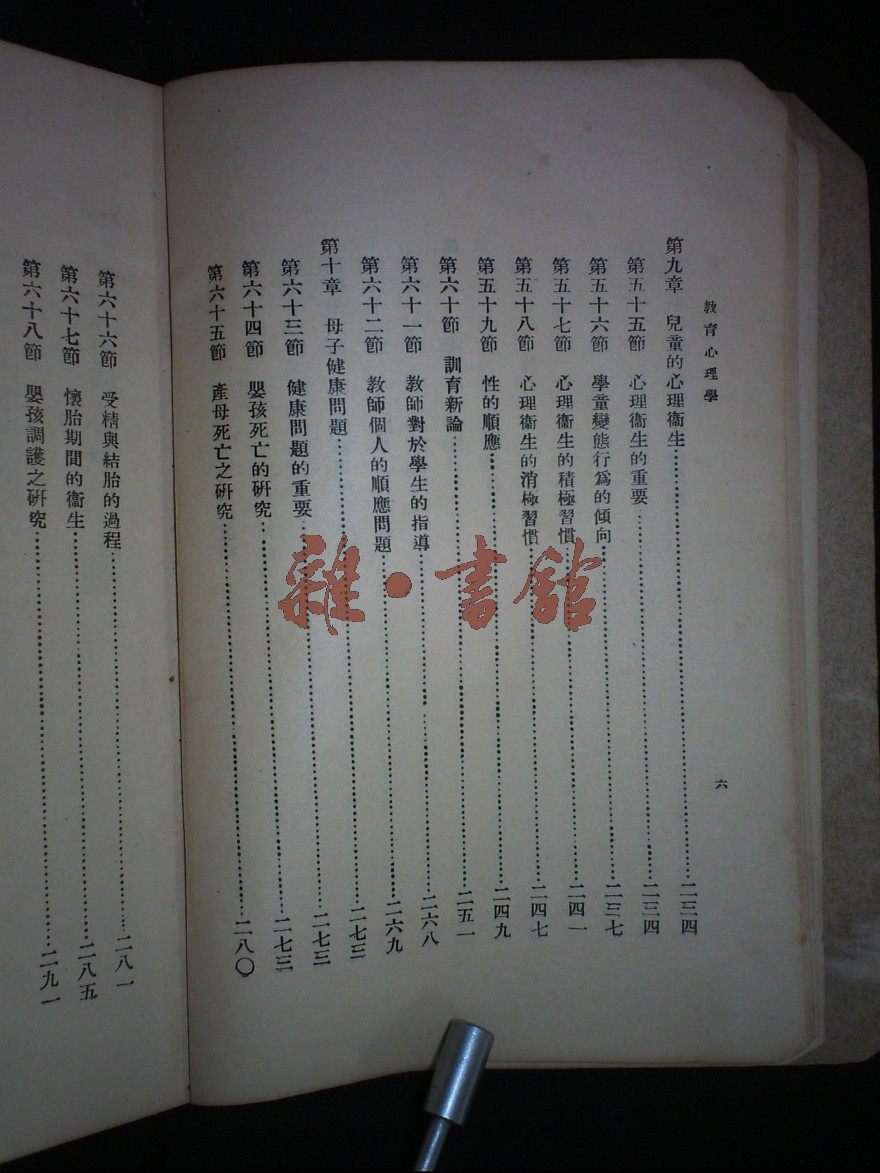 教育心理學 六
第九章 兒童的心理衞生……二三四
第五十五節 心理衞生的重要……二三四
第五十六節 學童變態行爲的傾向……二三七
第五十七節 心理衞生的積極習慣……二四一
第五十八節 心理衞生的消極習慣……二四七
第五十九節 性的順應……二四九
第六十節 訓育新論……二五一
第六十一節 教師對於學生的指導……二六八
第六十二節 教師個人的順應問題……二六九
第十章 母子健康問題……二七三
第六十三節 健康問題的重要……二七三
第六十四節 嬰孩死亡的研究……二七三
第六十五節 產母死亡之研究……二八〇
第六十六節 受精與結胎的過程……二八一
第六十七節 懷胎期間的衞生……二八五
第六十八節 嬰孩調護之研究……二九一
雜·書館